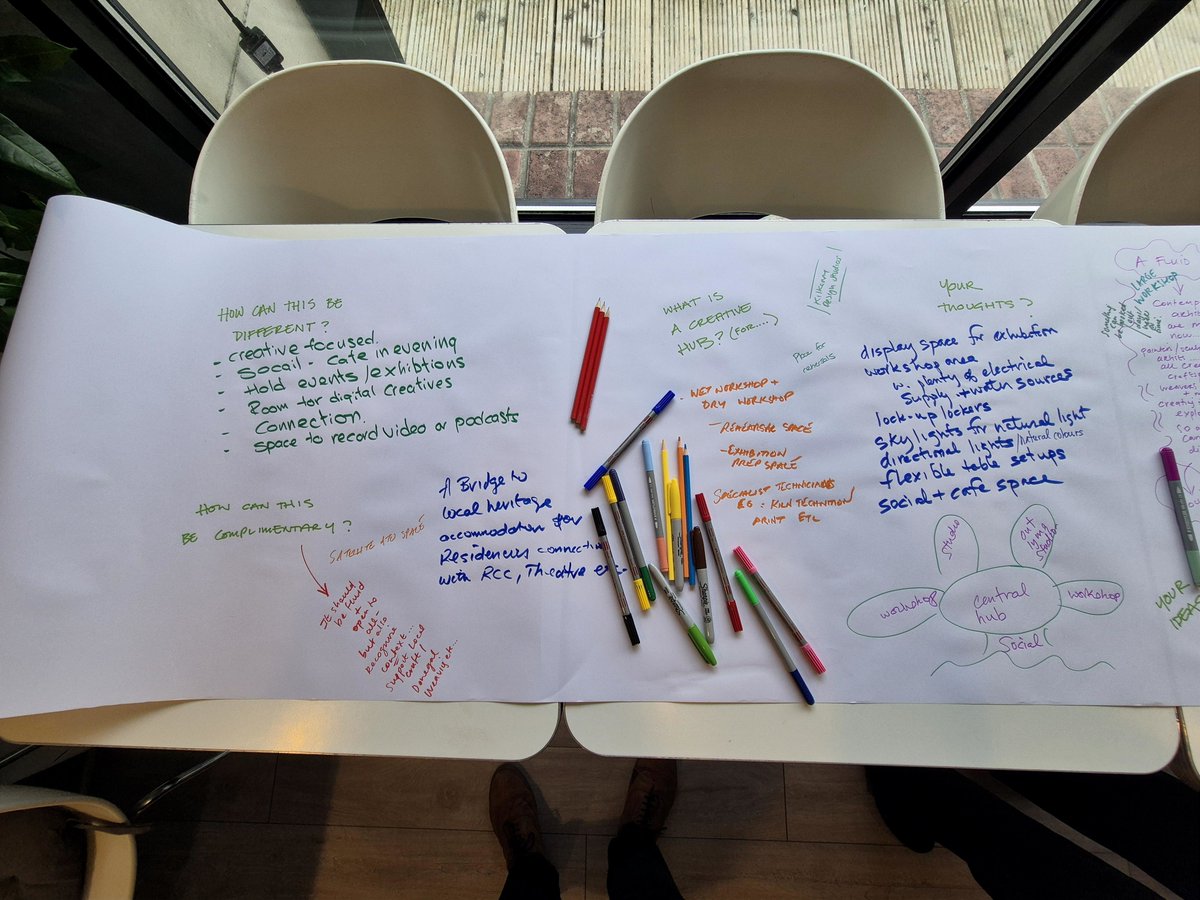 HOW CAN THIS BE
DIFFERENT?
- creative focused.
- Socail - Cafe in evening
- Hold events/exhibtions
- Room for digital creatives
- Connection.
- space to record video or podcasts
HOW CAN THIS
BE COMPLIMENTARY?
It should
be fluid
open to
all -
but also
Recognise
context...
Support Local
craft/
Donegal
weaving etc...
A Bridge to
local heritage
accommodation for
Residencies connecting
with RCC, Theatre etc.
WHAT IS
A CREATIVE
HUB? (FOR....)
Kilkenny
Design
Place for
rehersals
- WET WORKSHOP +
DRY WORKSHOP
- REHEARSAL SPACE
- EXHIBITION
PREP SPACE
SPECIALIST TECHNICIANS
EG: KILN TECHNITION
PRINT ETC
YOUR
THOUGHTS?
display space for exhibition
workshop area
w. plenty of electrical
supply + water sources
lock-up lockers
skylights for natural light
directional lights/natural colours
flexible table setups
social + cafe space
Studio
workshop
central
hub
workshop
Social
A FLUID
LARGE
WORKSHOP
YOUR
IDEAS